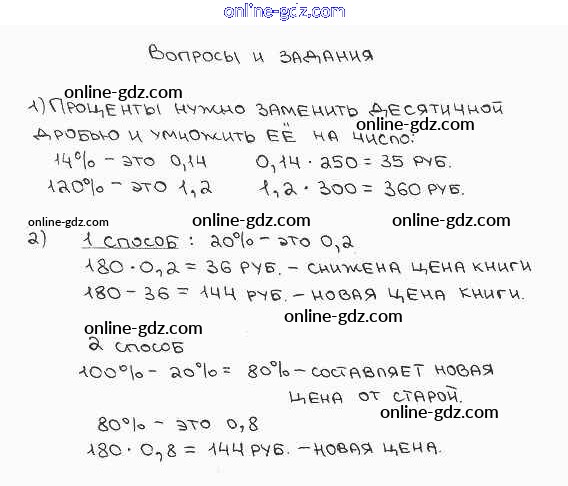 online-gdz.com
Вопросы и задания
online-gdz.com
1) Проценты нужно заменить десятичной
online-gdz.com
дробью и умножить её на число.
14% – это 0,14 0,14 · 250 = 35 руб.
120% – это 1,2 1,2 · 300 = 360 руб.
online-gdz.com online-gdz.com online-gdz.com
2) 1 способ: 20% – это 0,2
180 · 0,2 = 36 руб. – снижена цена книги
180 – 36 = 144 руб. – новая цена книги.
online-gdz.com online-gdz.com
2 способ
100% – 20% = 80% – составляет новая
цена от старой.
online-gdz.com
80% – это 0,8
180 · 0,8 = 144 руб. – новая цена.
online-gdz.com